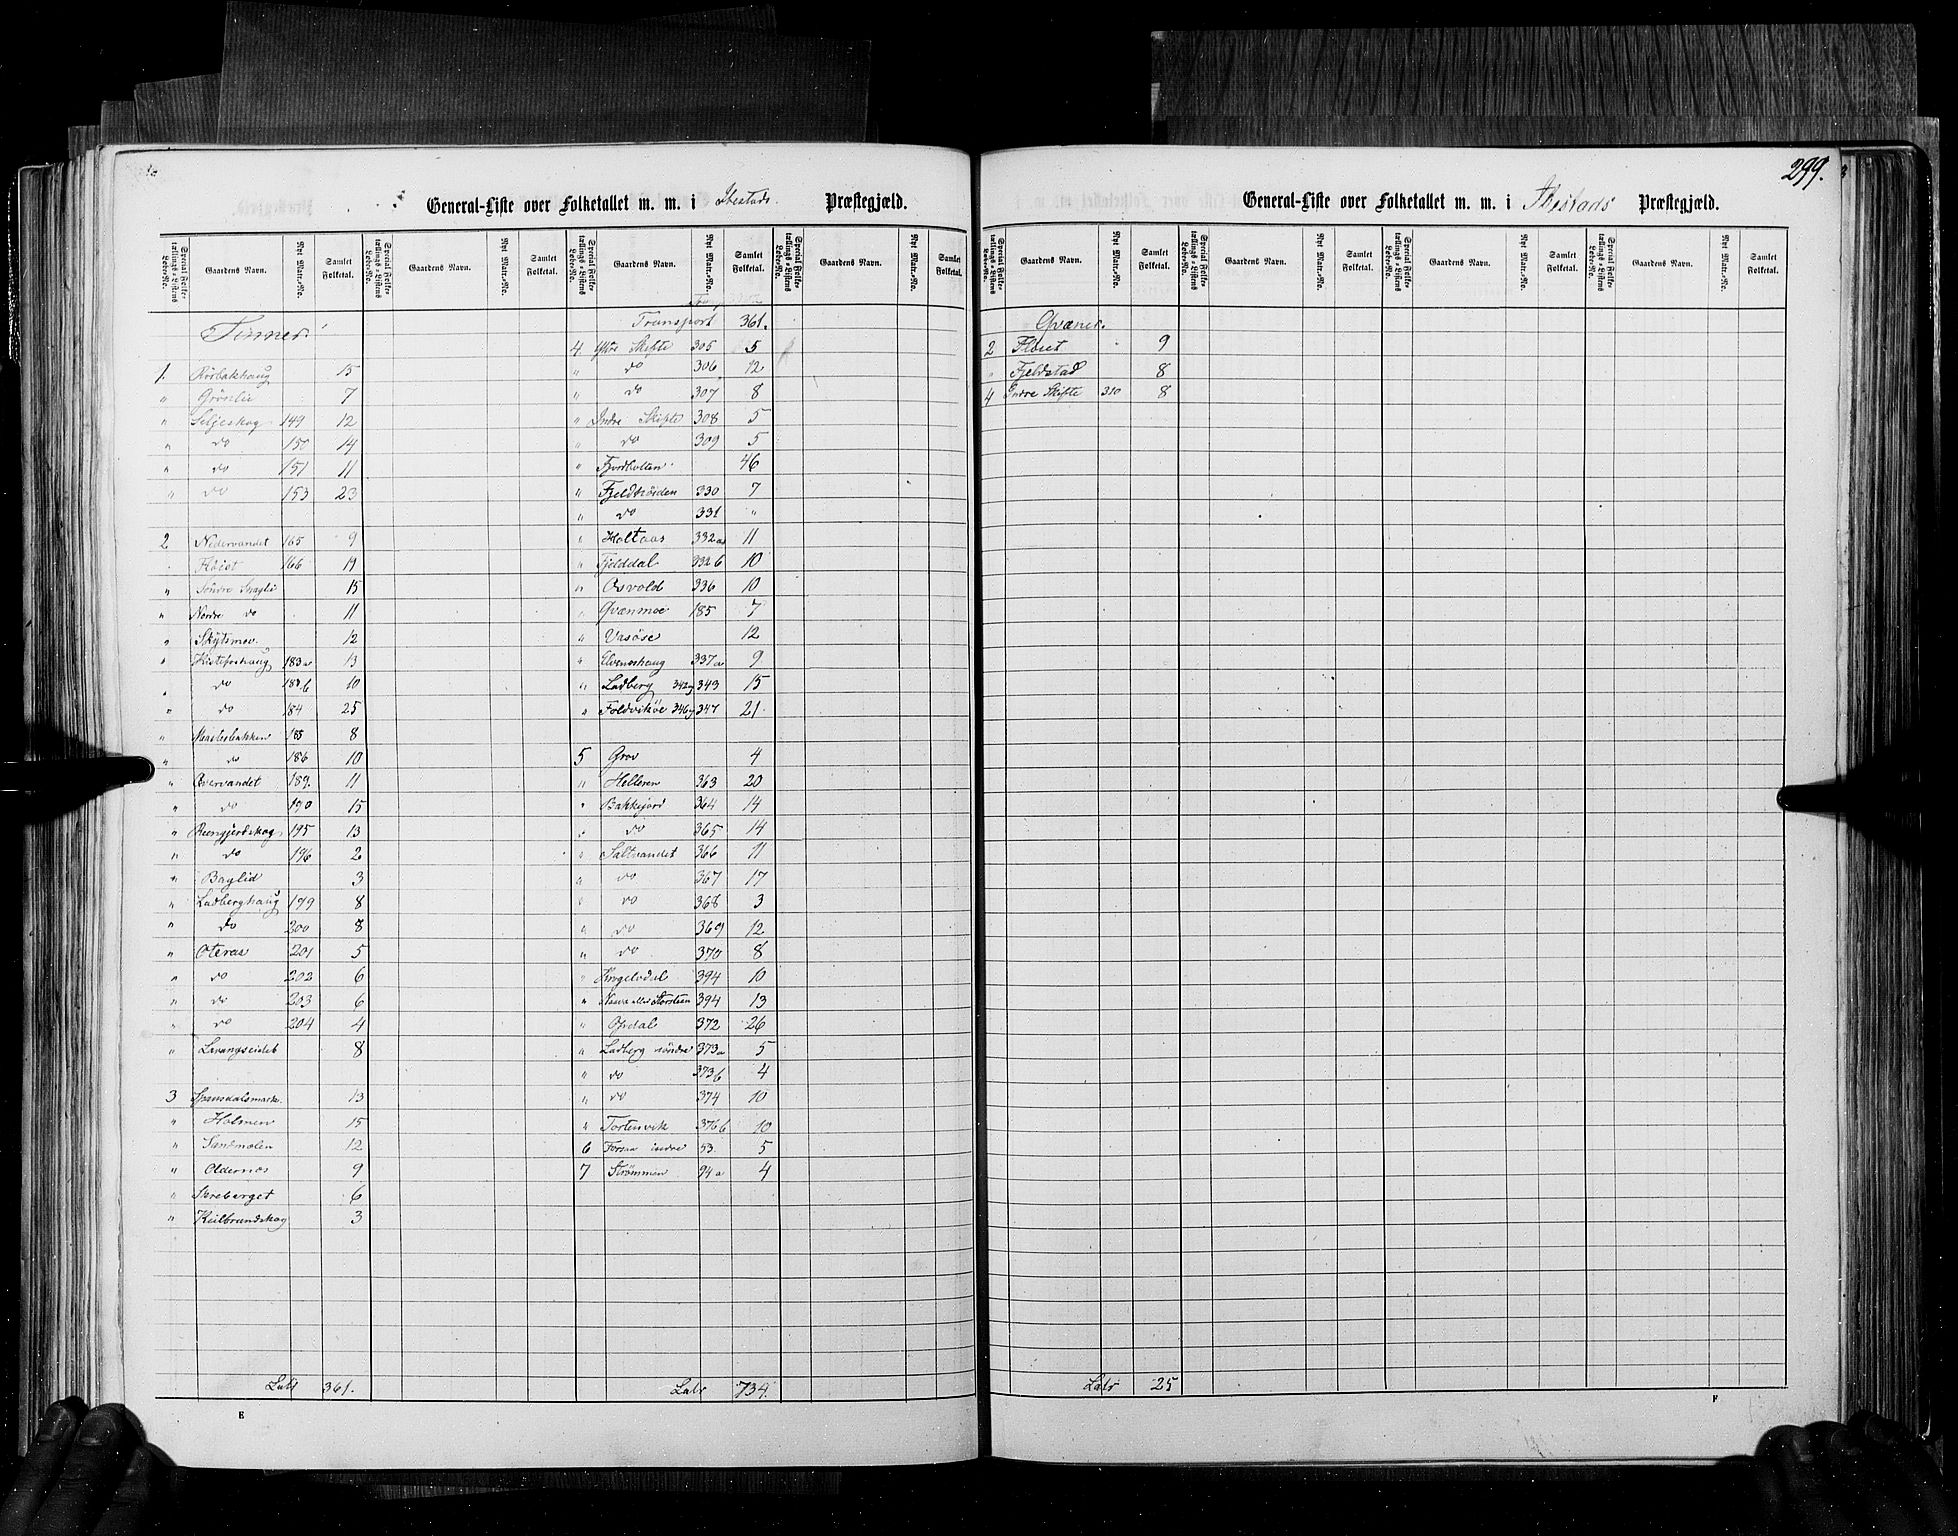 299.
General-Liste over Folketallet m. m. i Ibestads Præstegjæld.
Special Folketællings-Listens Løbe-No. Gaardens Navn. Nyt Matr.-No. Samlet Folketal. Special Folketællings-Listens Løbe-No. Gaardens Navn. Nyt Matr.-No. Samlet Folketal. Special Folketællings-Listens Løbe-No. Gaardens Navn. Nyt Matr.-No. Samlet Folketal. Special Folketællings-Listens Løbe-No. Gaardens Navn. Nyt Matr.-No. Samlet Folketal.
Finner.
1. Rørbakhaug 15
" Grønlie 7
" Seljeskog 149 12
" do 150 14
" do 151 11
" do 153 23
2 Nedervandet 165 9
Fløiet 166 19
" Søndre Skoglie 15
" Nordre do 11
" Skytsmo 12
" Kisteforhaug 183a 13
" do 183b 10
" do 184 25
" Masterbakken 185 8
" do 186 10
" Overvandet 189. 11
" do 190 15
" Reengjerdskog 195 13
" do 196 2
" Boglid 3
" Ladberghaug 199 8
" do 200 8
" Oteraas 201 5
" do 202 6
" do 203 6
" do 204 4
" Lavangseidet 8
3 Spansdalsmark. 13
" Holmen 15
" Sandmolen 12
" Oldernæs 9
" Storeberget 6
" Keilbrundskog 3
Lats 361.
Transport 361.
4 Ytre Skifte 305 5
" do 306 12
" do 307 8
" Indre Skifte 308 5
" do 309 5
" Fjordbotten 46
" Fjeldhøiden 330 7
" do 331 "
" Holtaas 332a 11
" Fjelddal 332b 10
" Osvold 336 10
" Qvænmoe 185 7
" Vasøse 12
" Elveneshaug 337a 9
" Ladberg 342 og 343 15
" Foldvikøe 346 og 347 21
5 Grov 4
" Helleren 363 20
" Bakkejord 364 14
" do 365 14
" Saltvandet 366 11
" do 367 17
" do 368 3
" do 369 12
" do 370 8
" Kngelsdal 394 10
" Næver eller Storsteen 394 13
" Opdal 372 26
" Ladberg søndre 373a 5
" do 373b 4
" do 374 10
" Tortenvik 376b 10
6 Forsaa indre 53. 5
7 Strømmen 94a 4
Lats 734.
E
General-Liste over Folketallet m. m. i Ibestads Præstegjæld.
Special Folketællings-Listens Løbe-No. Gaardens Navn. Nyt Matr.-No. Samlet Folketal. Special Folketællings-Listens Løbe-No. Gaardens Navn. Nyt Matr.-No. Samlet Folketal. Special Folketællings-Listens Løbe-No. Gaardens Navn. Nyt Matr.-No. Samlet Folketal. Special Folketællings-Listens Løbe-No. Gaardens Navn. Nyt Matr.-No. Samlet Folketal.
Qvæner.
2 Fløiet 9
" Fjeldstad 8
4 Indre Skifte 310 8
Lats 25
F